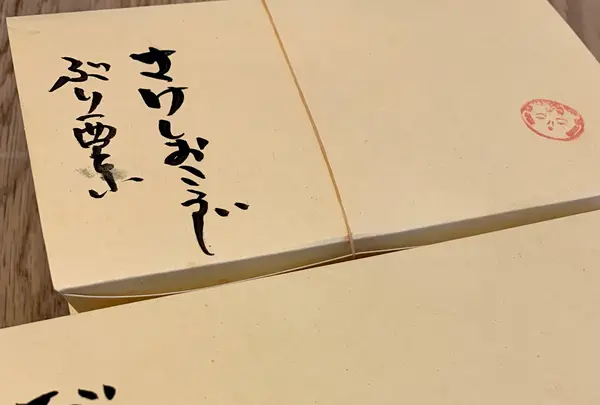 さけしおこうじ
ぶり西京